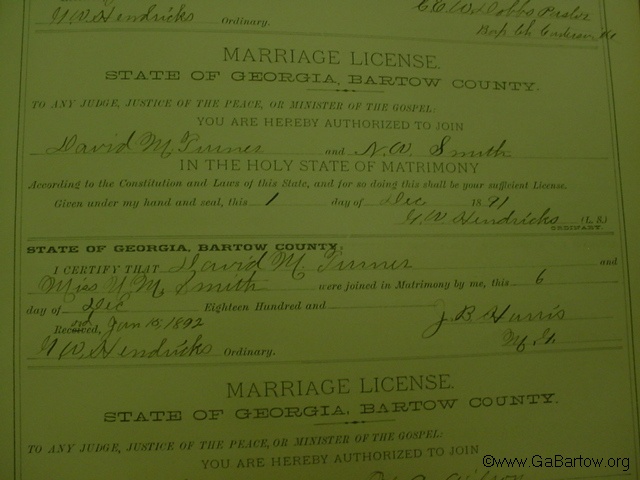 G W Hendricks Ordinary.
C.C.W. Dobbs Pastor
MARRIAGE LICENSE.
STATE OF GEORGIA, BARTOW COUNTY.
TO ANY JUDGE, JUSTICE OF THE PEACE, OR MINISTER OF THE GOSPEL:
YOU ARE HEREBY AUTHORIZED TO JOIN
David M Turner and Smith
IN THE HOLY STATE OF MATRIMONY
According to the Constitution and Laws of this State, and for so doing this shall be your sufficient License.
Given under my hand and seal, this 1 day of Dec 1891
G W Hendricks (L. S.)
ORDINARY.
STATE OF GEORGIA, BARTOW COUNTY.
I CERTIFY THAT David M. Turner and
Miss M Smith were joined in Matrimony by me, this 6
day of Dec Eighteen Hundred and
J. B. Harris
Received, Jan 15, 1892
M. G.
G W Hendricks Ordinary.
MARRIAGE LICENSE.
STATE OF GEORGIA, BARTOW COUNTY.
TO ANY JUDGE, JUSTICE OF THE PEACE, OR MINISTER OF THE GOSPEL:
YOU ARE HEREBY AUTHORIZED TO JOIN
©www.GaBartow.org